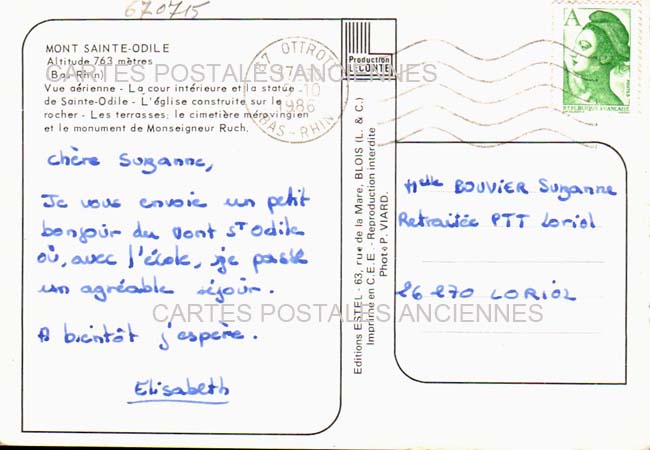 670715
MONT SAINTE-ODILE
Altitude 763 mètres
(Bas-Rhin)
Vue aérienne - La cour intérieure et la statue
de Sainte-Odile - L'église construite sur le
rocher - Les terrasses; le cimetière mérovingien
et le monument de Monseigneur Ruch.
CARTES POSTALES ANCIENNES
Chère Suzanne,
Je vous envoie un petit
bonjour du Mont St Odile
où, avec l'école, je passe
un agréable séjour.
A bientôt j'espère.
Elisabeth
CARTES POSTALES ANCIENNES
67 OTTROTT
10
1986
BAS-RHIN
Production
LECONTE
Editions ESTEL - 63, rue de la Mare, BLOIS (L. & C.)
Imprimé en C.E.E. - Reproduction interdite
Photo P. VIARD.
A
REPUBLIQUE FRANÇAISE
Melle BOUVIER Suzanne
Retraitée PTT Loriol
26 270 LORIOL